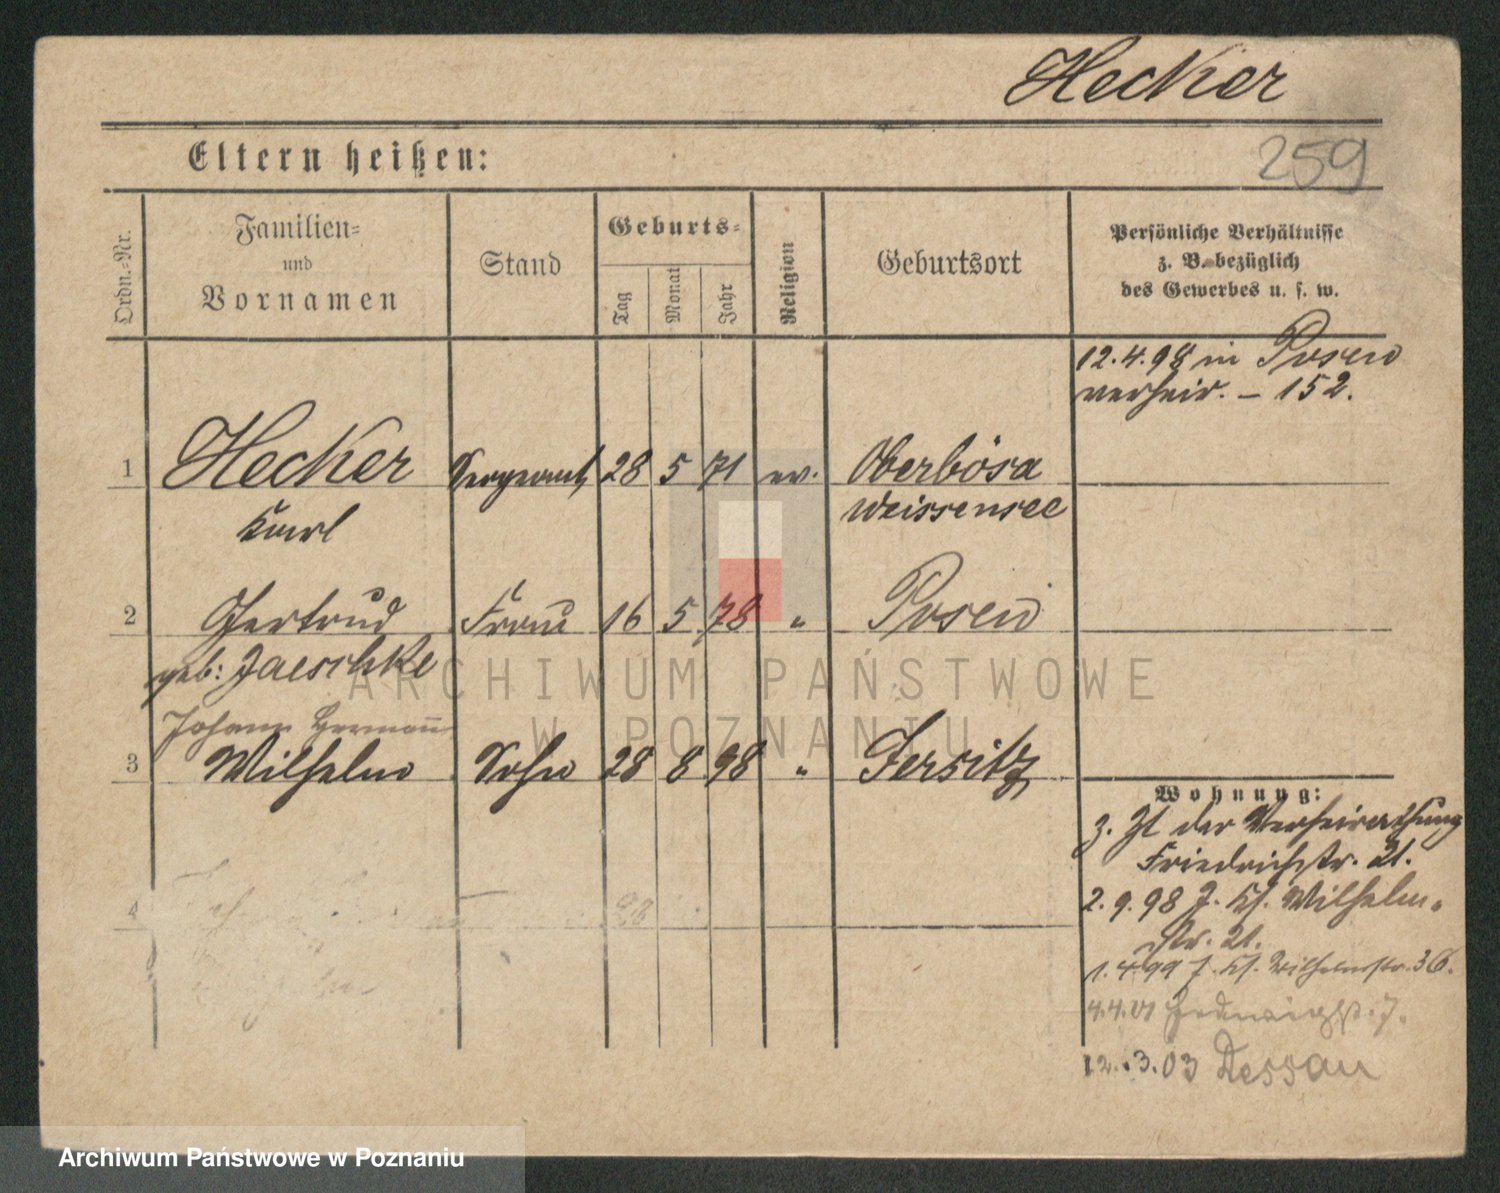 Hecker
259
Eltern heißen:
Ordn.-Nr.
Familien-
und
Vornamen
Stand
Geburts-
Tag
Monat
Jahr
Religion
Geburtsort
Persönliche Verhältnisse
z. B. bezüglich
des Gewerbes u. s. w.
12.4.98 in Posen
verheir. – 152.
1 Hecker Sergeant 28 5 71 ev. Oberbösa
Karl Weissensee
2 Gertrud Frau 16 5 78 " Posen
geb: Jaeschke
Johann Hermann
3 Wilhelm Sohn 28 8 98 " Jersitz
Wohnung:
z. Zt der Verheirathung
Friedrichstr. 21.
4 28
2.9.98 J. Kl. Wilhelm-
str. 21.
1.4.99 J. Kl. Wilhelmstr. 36.
4.4.01 Hedwigstr. 7.
12.3.03 Dessau
ARCHIWUM PAŃSTWOWE
W POZNANIU
Archiwum Państwowe w Poznaniu